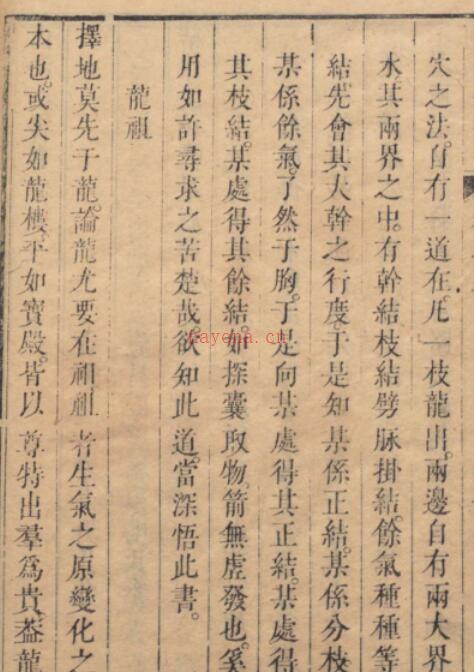 穴之法。自有一道在。凡一枝龍出。兩邊自有兩大界
水。其兩界之中。有幹結枝結劈脉掛結。餘氣種種等
結。先會其大幹之行度。于是知某係正結。某係分枝
某係餘氣。了然于胸。于是向某處得其正結。某處得
其枝結。某處得其餘結。如探囊取物。箭無虛發也。奚
用如許尋求之苦楚哉。欲知此道。當深悟此書。
龍祖
擇地莫先于龍。論龍尤要在祖。祖者生氣之原。變化之
本也。或尖如龍樓。平如寶殿。皆以尊特出羣爲貴。葢龍
nayena.cn